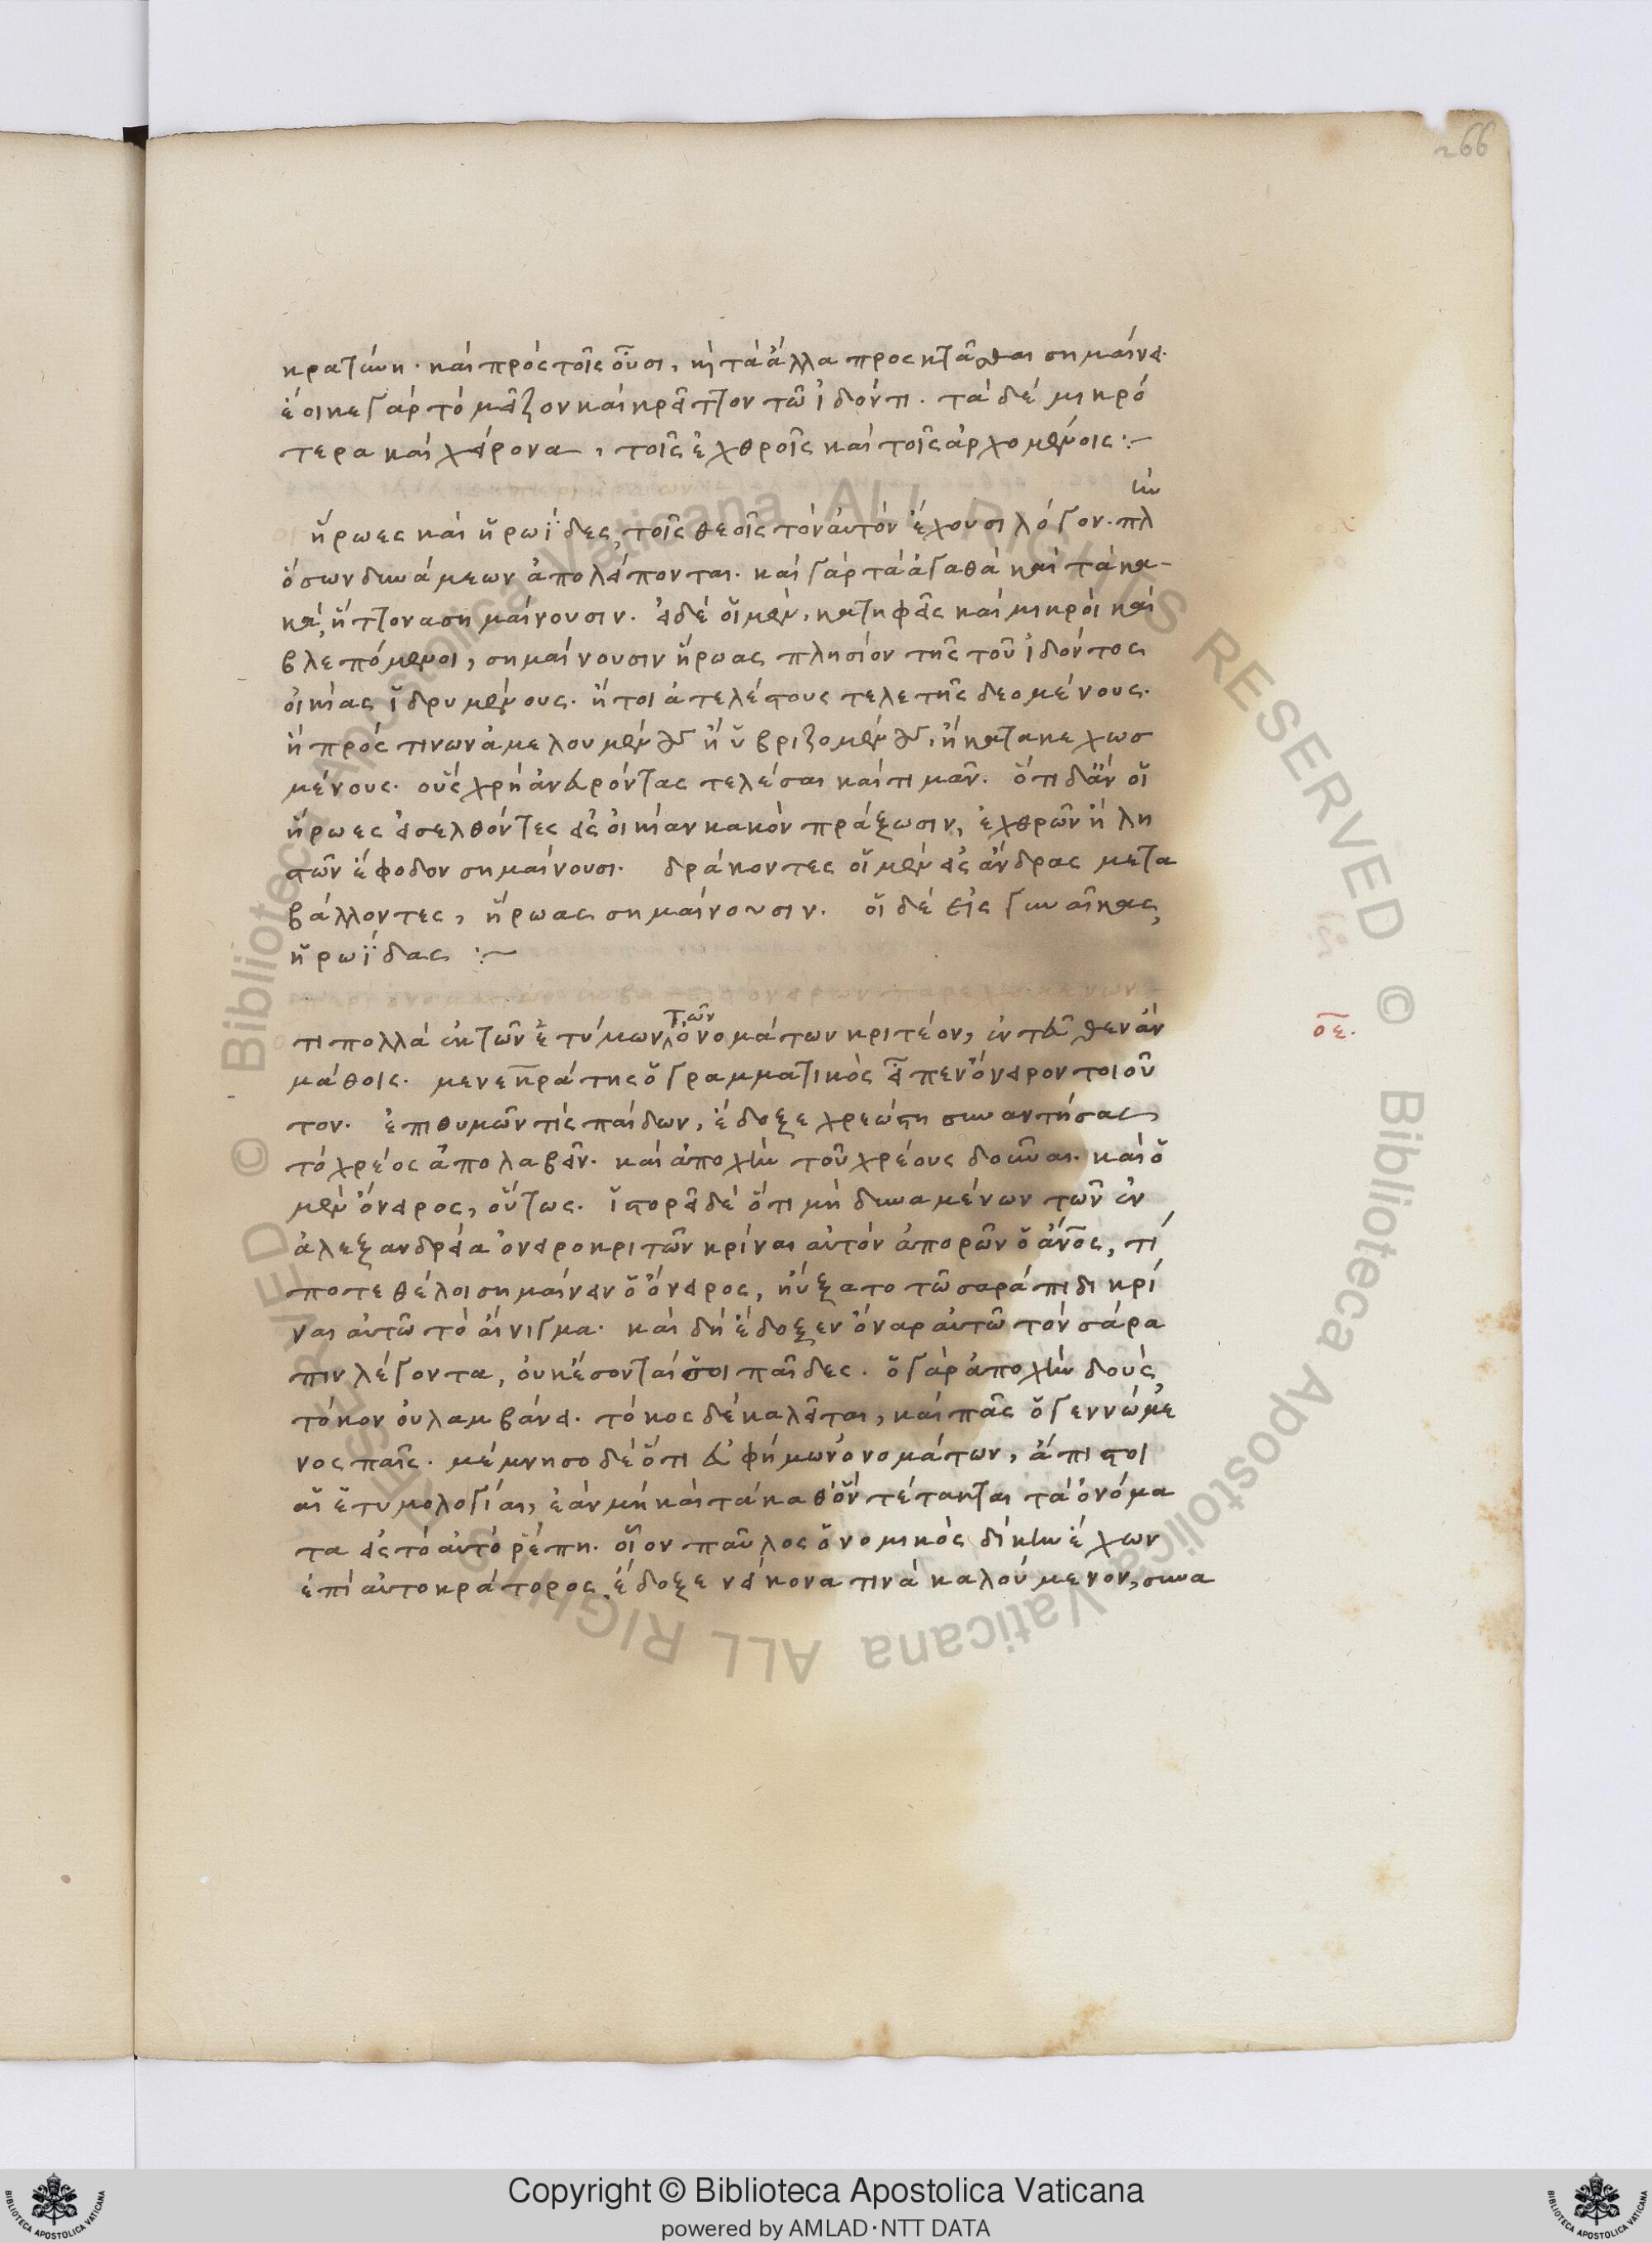 266
κρατύνη. καὶ πρὸς τοῖς οὖσι, κὴ τὰ ἄλλα προς κτᾶσθαι σημαίνει.
ἔοικε γὰρ τὸ μεῖζον καὶ κρεῖττον τῶ ἰδόντι. τὰ δὲ μικρό
τερα καὶ χείρονα, τοῖς ἐχθροῖς καὶ τοῖς ἀρχομένοις :~
ὴν
ἥρωες καὶ ἡρωΐδες, τοῖς θεοῖς τὸν αὐτὸν ἔχουσι λόγον. πλ
ὅσων δυνάμεων ἀπολείπονται. καὶ γὰρ τὰ ἀγαθὰ καὶ τὰ κα-
κὰ, ἥττονα σημαίνουσιν. εἰ δὲ οἱ μὲν, κατηφεῖς καὶ μικροὶ καὶ
βλεπόμενοι, σημαίνουσιν ἥρωας πλησίον τῆς τοῦ ἰδόντος
οἰκίας ἱδρυμένους. ἤτοι ἀτελέστους τελετῆς δεομένους.
ἢ πρός τινων ἀμελουμένους ἢ ὑβριζομένους, ἢ κατακεχωσ
μένους. οὓς χρὴ ἀνευρόντας τελέσαι καὶ τιμᾶν. ὅτι δἂν οἱ
ἥρωες εἰσελθόντες εἰς οἰκίαν κακὸν πράξωσιν, ἐχθρῶν ἢ λη
στῶν ἔφοδον σημαίνουσι. δράκοντες οἱ μὲν εἰς ἄνδρας μετα
βάλλοντες, ἥρωας σημαίνουσιν. οἱ δὲ εἰς γυναῖκας,
ἡρωΐδας :~
τῶν
τι πολλὰ ἐκ τῶν ἐτύμων ὀνομάτων κριτέον, ἐντεῦθεν ἂν
οε.
μάθοις. μενεκράτης ὁ γραμματικὸς εἶπεν ὄνειρον τοιοῦ
τον. ἐπιθυμῶν τίς παίδων, ἔδοξε χρεώστη συναντήσας
τὸ χρέος ἀπολαβεῖν. καὶ ἀποχὴν τοῦ χρέους δοῦναι. καὶ ὁ
μὲν ὄνειρος, οὕτως. ἱστορεῖ δὲ ὅτι μὴ δυναμένων τῶν ἐν
ἀλεξανδρείᾳ ὀνειροκριτῶν κρίναι αὐτὸν ἀπορῶν ὁ ἄνος, τί
ποτε θέλοι σημαίνειν ὁ ὄνειρος, ηὔξατο τῶ σαράπιδι κρί
ναι αὐτῶ τὸ αἴνιγμα. καὶ δὴ ἔδοξεν ὄναρ αὐτῶ τὸν σάρα
πιν λέγοντα, οὐκ ἔσονταί σοι παῖδες. ὁ γὰρ ἀποχὴν δοὺς,
τόκον οὐ λαμβάνει. τόκος δὲ καλεῖται, καὶ πᾶς ὁ γεννώμε
νος παῖς. μέμνησο δὲ ὅτι εὐφήμων ὀνομάτων, ἄπιστοι
αἱ ἐτυμολογίαι, ἐὰν μὴ καὶ τὰ καθ' ὧν τέτακται τὰ ὀνόμα
τα εἰς τὸ αὐτὸ ῥέπη. οἷον παῦλος ὁ νομικὸς δίκην ἔχων
ἐπὶ αὐτοκράτορος, ἔδοξε νείκονα τινὰ καλούμενον, συνα